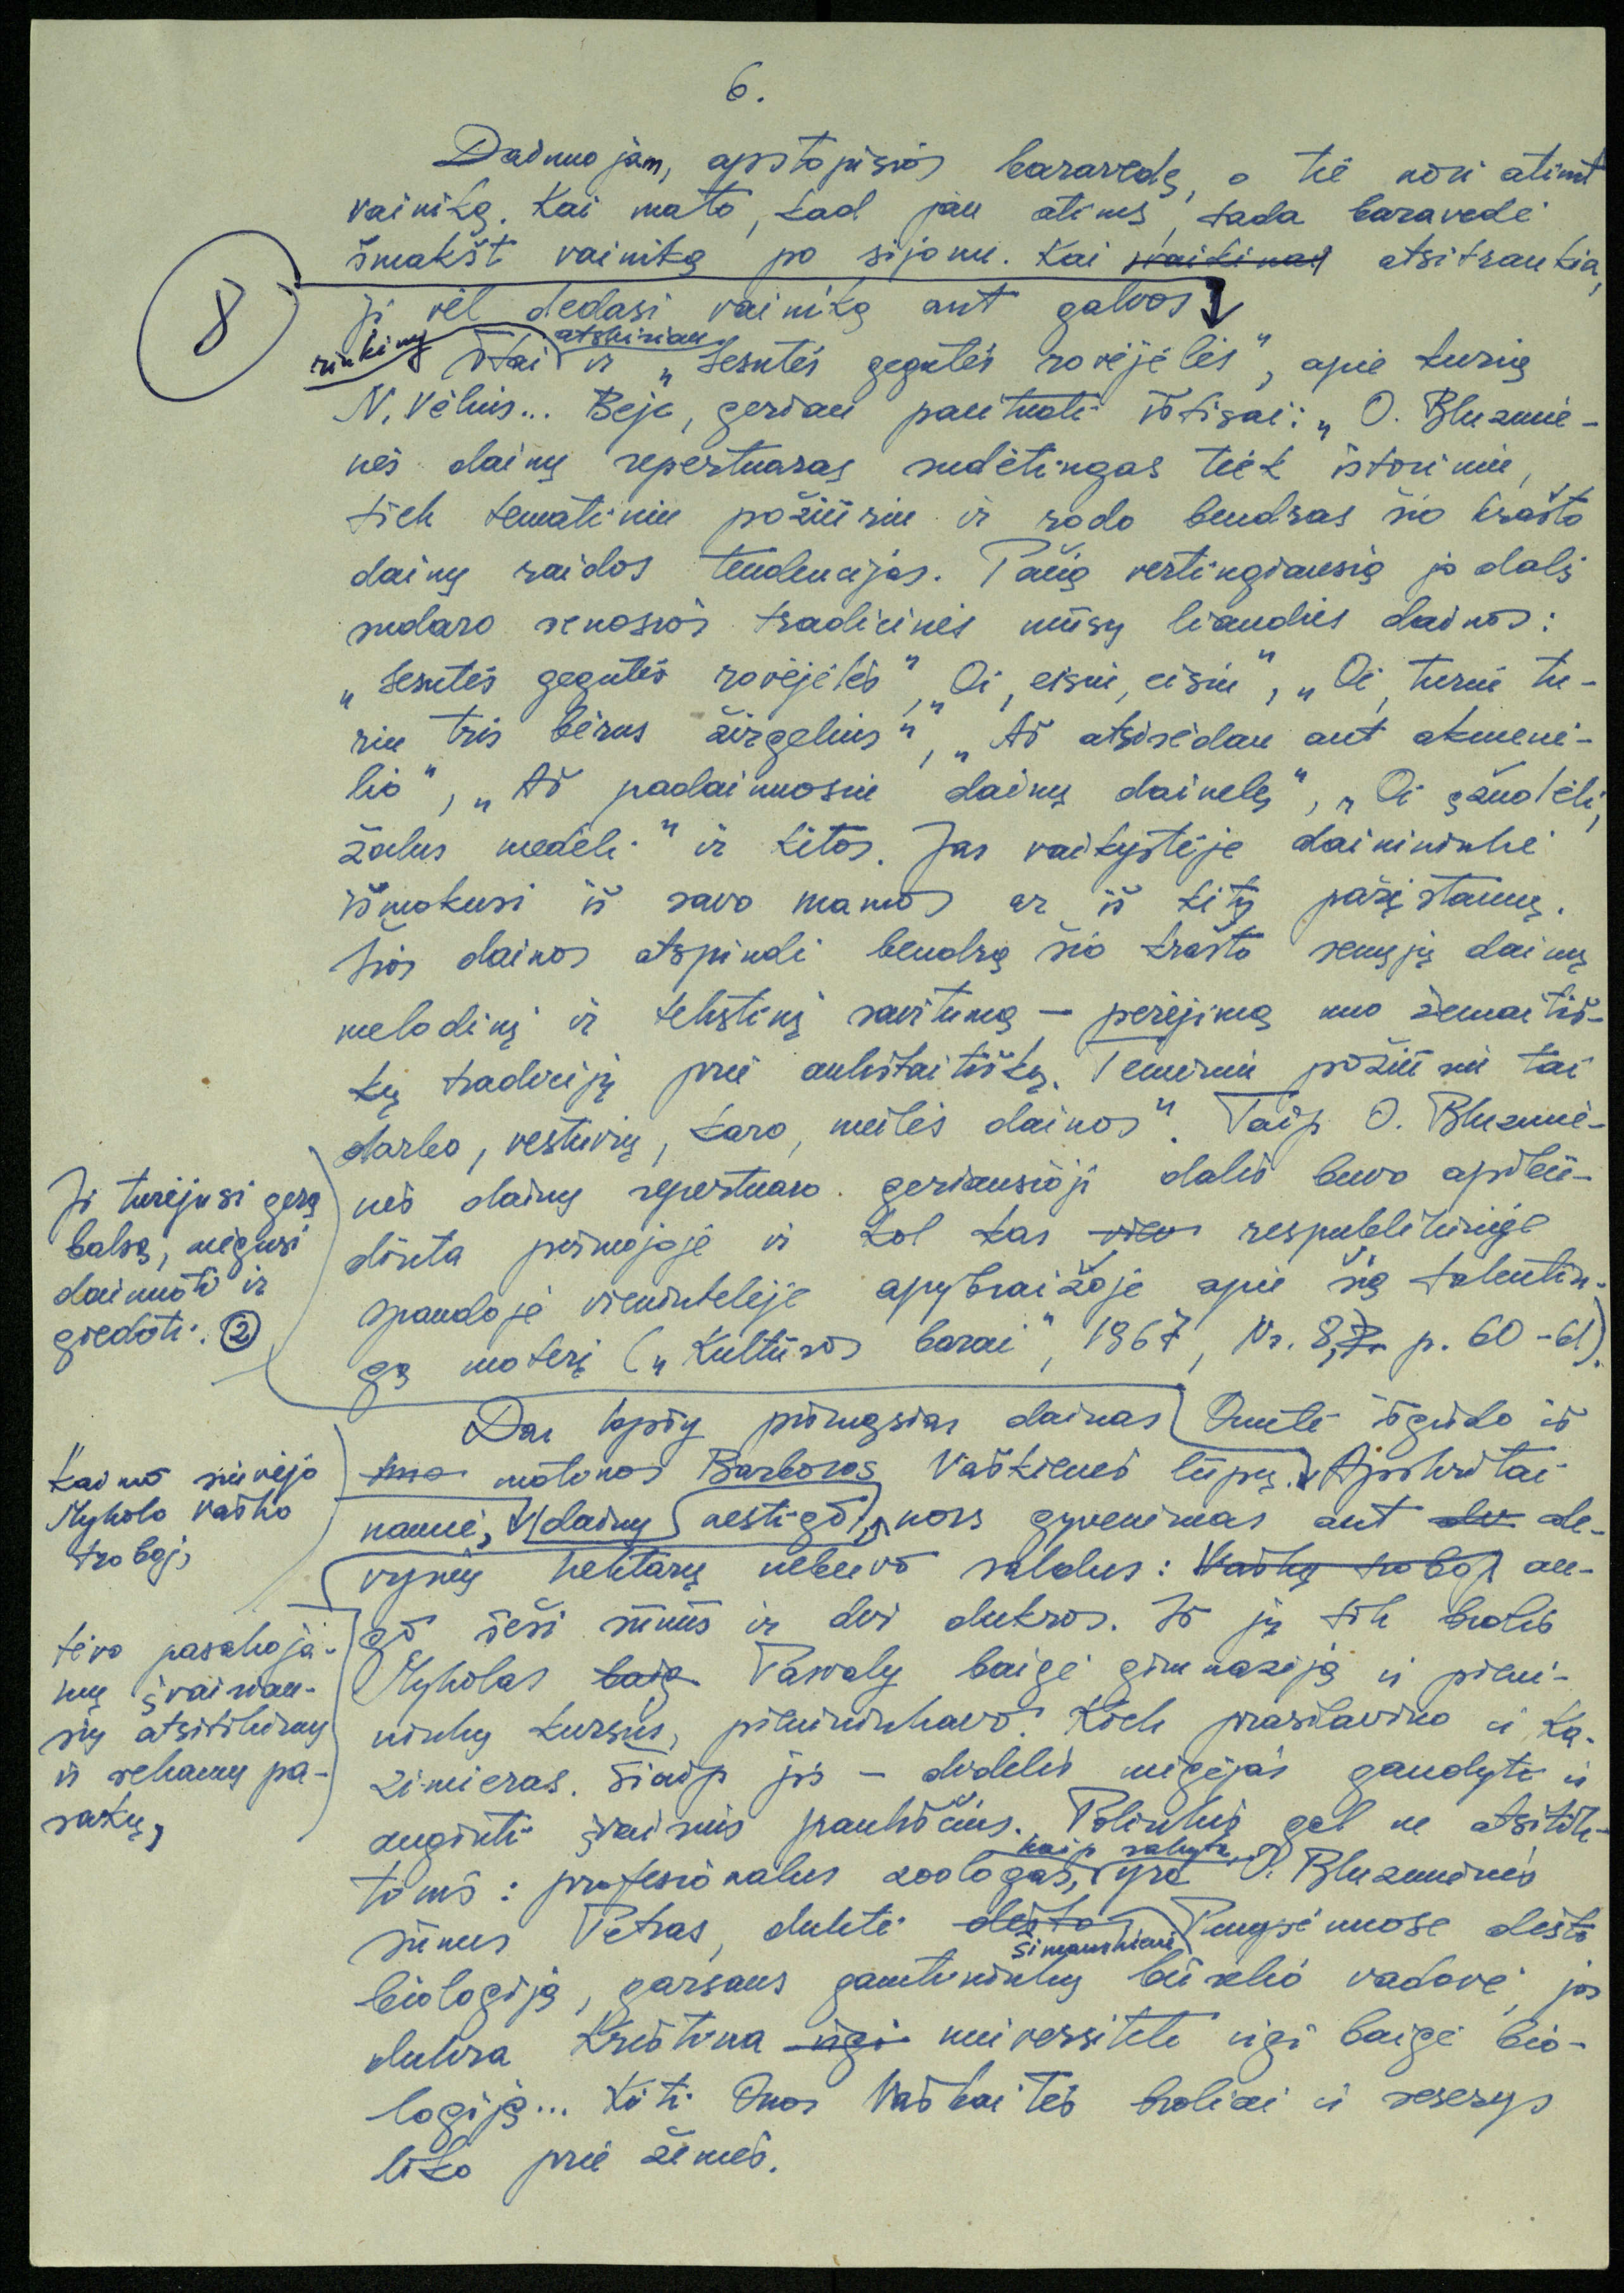 6.
Dainuojam, apstojusios karavedę, o tie nori atimt
vainiką. Kai mato, kad jau atims, tada karavedė
šmakšt vainiką po sijonu. Kai vaikinas atsitraukia,
ji vėl dedasi vainiką ant galvos.
8
rinkinų
atskiriau
Štai ir „Sesutės gegutės rovėjėlės", apie kurią
N. Vėlius... Beje, geriau pacituoti ištisai: „O. Bluzmie-
nės dainų repertuaras sudėtingas tiek istoriniu,
tiek tematiniu požiūriu ir rodo bendras šio krašto
dainų raidos tendencijas. Pačią vertingiausią jo dalį
sudaro senosios tradicinės mūsų liaudies dainos:
„Sesutės gegutės rovėjėlės", „Oi, eisiu, eisiu", „Oi, turiu tu-
riu tris bėrus žirgelius", „Aš atsisėdau ant akmenė-
lio", „Aš padainuosiu dainų dainelę", „Oi ąžuolėli,
žalias medeli" ir kitos. Jas vaikystėje dainininkė
išmokusi iš savo mamos ar iš kitų pažįstamų.
Šios dainos atspindi bendrą šio krašto senųjų dainų
melodinį ir tekstinį savitumą — perėjimą nuo žemaitiš-
kų tradicijų prie aukštaitiškų. Teminiu požiūriu tai
darbo, vestuvių, karo, meilės dainos". Taip O. Bluzmie-
nės dainų repertuaro geriausioji dalis buvo apibū-
dinta pirmojoje ir kol kas respublikinėje
spaudoje vienintelėje apybraižoje apie šią talentin-
gą moterį („Kultūros barai", 1967, Nr. 8, p. 60-61).
Ji turėjusi gerą
balsą, mėgusi
dainuoti ir
giedoti. 2
Dar lopšy pirmąsias dainas Onutė išgirdo iš
motinos Barboros Vaškienės lūpų. Apskritai
namie, dainų nestigo, nors gyvenimas ant de-
vynių hektarų nebuvo saldus: Vaškų troboj au-
go šeši sūnūs ir dvi dukros. Iš jų tik brolis
Mykolas baig Pasvaly baigė gimnaziją ir pieni-
ninkų kursus, pienininkavo. Kiek prasilavino ir Ka-
zimieras. Šiaip jis — didelis mėgėjas gaudyti ir
auginti įvairius paukščius. Polinkis gal ne atsitik-
tinis: profesionalus zoologas, kaip sakyta, yra O. Bluzmienės
sūnus Petras, duktė dėsto Simanskienė Rumpėnuose dėsto
biologiją, garsaus gamtininkų būrelio vadovė, jos
dukra Kristina irgi universitete irgi baigė bio-
logiją... Kiti Onos Vaškaitės broliai ir seserys
liko prie žemės.
Kaimo siuvėjo
Mykolo Vaško
troboj,
tėvo pasakoja-
mų įvairiau-
sių atsitikimų
ir sekamų pa-
sakų,